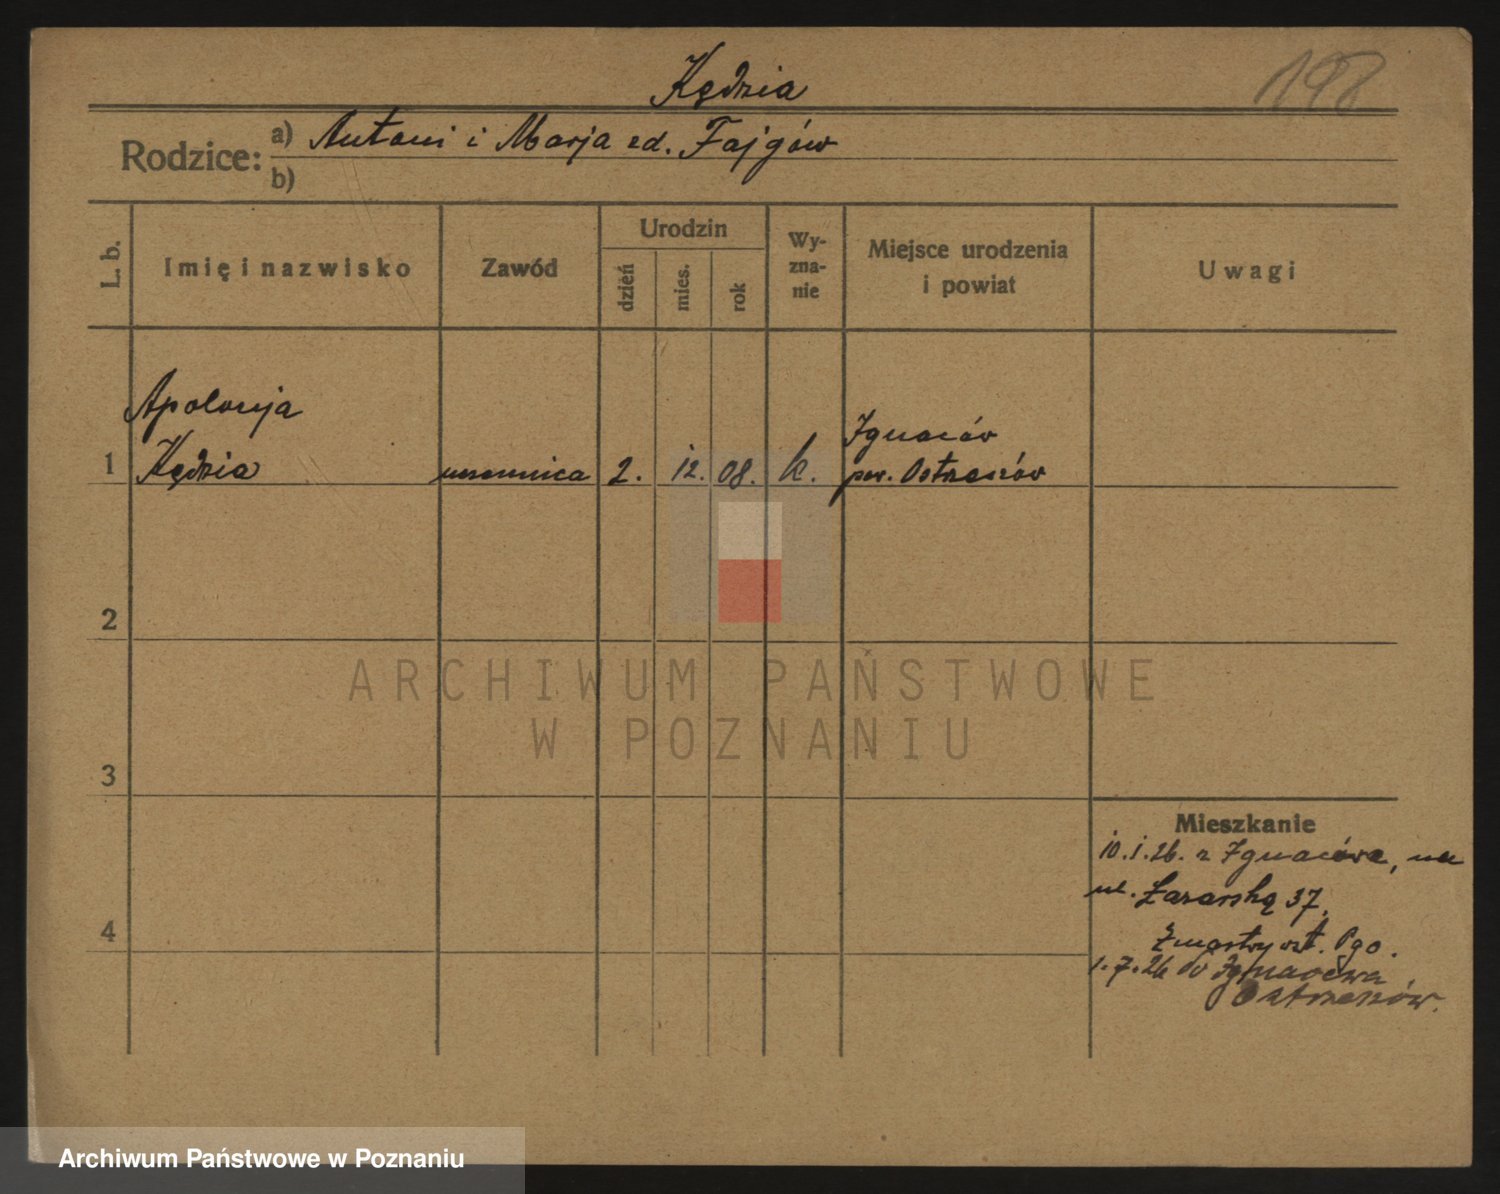 Kędzia
198
Rodzice: a) Antoni i Marja zd. Fajgów
b)
L. b.
Imię i nazwisko
Zawód
Urodzin
dzień
mies.
rok
Wy-
zna-
nie
Miejsce urodzenia
i powiat
Uwagi
Apolonja
1 Kędzia uczennica 2. 12. 08. k.
Ignaców
pow. Ostrzeszów
2
3
4
Mieszkanie
10.1.26. z Ignacowa, na
ul. Łazarską 37,
1.7.26 do Ignacewa
Ostrzeszów.
ARCHIWUM PAŃSTWOWE
W POZNANIU
Archiwum Państwowe w Poznaniu